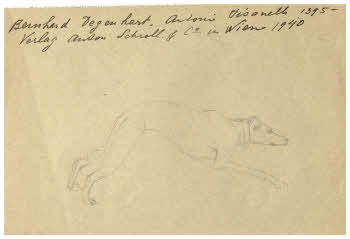 Bernhard Degenhart. Antonio Pisanello 1395–
Verlag Anton Schroll & Cº in Wien 1940